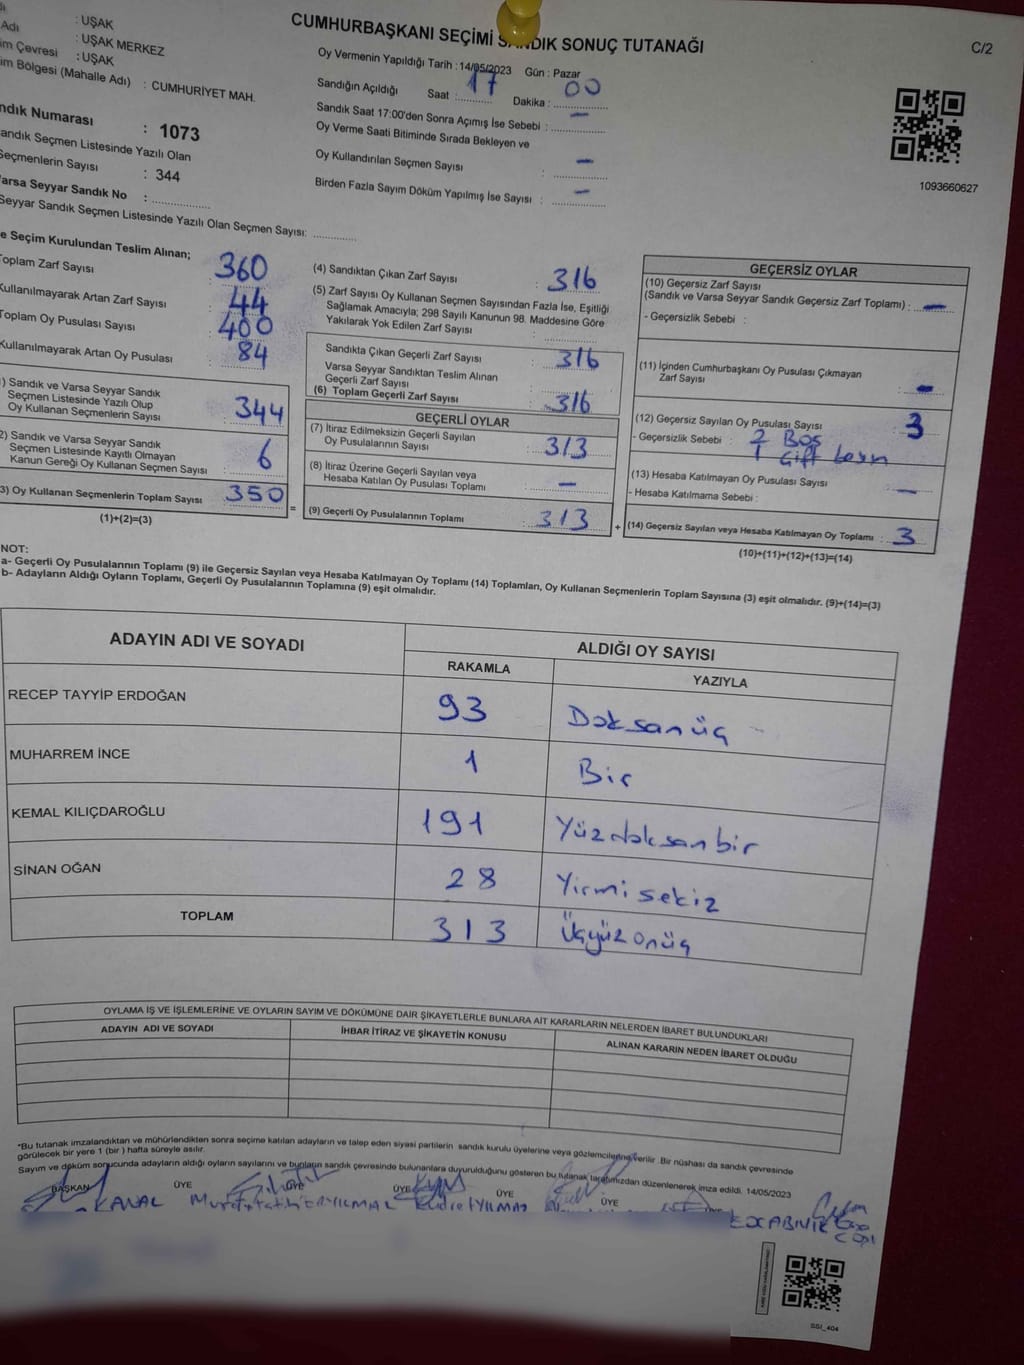 CUMHURBAŞKANI SEÇİMİ SANDIK SONUÇ TUTANAĞI
C/2
: UŞAK
Adı : UŞAK MERKEZ
im Çevresi : UŞAK
im Bölgesi (Mahalle Adı) : CUMHURİYET MAH.
ndık Numarası : 1073
andık Seçmen Listesinde Yazılı Olan
Seçmenlerin Sayısı : 344
Varsa Seyyar Sandık No :
Seyyar Sandık Seçmen Listesinde Yazılı Olan Seçmen Sayısı:
Oy Vermenin Yapıldığı Tarih : 14/05/2023 Gün : Pazar
Sandığın Açıldığı Saat : 17 Dakika : 00
Sandık Saat 17:00'den Sonra Açımış İse Sebebi : –
Oy Verme Saati Bitiminde Sırada Bekleyen ve
Oy Kullandırılan Seçmen Sayısı : –
Birden Fazla Sayım Döküm Yapılmış İse Sayısı : –
1093660627
e Seçim Kurulundan Teslim Alınan;
Toplam Zarf Sayısı : 360
Kullanılmayarak Artan Zarf Sayısı : 44
Toplam Oy Pusulası Sayısı : 400
Kullanılmayarak Artan Oy Pusulası : 84
1) Sandık ve Varsa Seyyar Sandık
Seçmen Listesinde Yazılı Olup
Oy Kullanan Seçmenlerin Sayısı : 344
2) Sandık ve Varsa Seyyar Sandık
Seçmen Listesinde Kayıtlı Olmayan
Kanun Gereği Oy Kullanan Seçmen Sayısı : 6
3) Oy Kullanan Seçmenlerin Toplam Sayısı : 350
(1)+(2)=(3)
=
(4) Sandıktan Çıkan Zarf Sayısı : 316
(5) Zarf Sayısı Oy Kullanan Seçmen Sayısından Fazla İse, Eşitliği
Sağlamak Amacıyla; 298 Sayılı Kanunun 98. Maddesine Göre
Yakılarak Yok Edilen Zarf Sayısı :
Sandıkta Çıkan Geçerli Zarf Sayısı : 316
Varsa Seyyar Sandıktan Teslim Alınan
Geçerli Zarf Sayısı :
(6) Toplam Geçerli Zarf Sayısı : 316
GEÇERLİ OYLAR
(7) İtiraz Edilmeksizin Geçerli Sayılan
Oy Pusulalarının Sayısı : 313
(8) İtiraz Üzerine Geçerli Sayılan veya
Hesaba Katılan Oy Pusulası Toplamı : –
(9) Geçerli Oy Pusulalarının Toplamı : 313
+
GEÇERSİZ OYLAR
(10) Geçersiz Zarf Sayısı
(Sandık ve Varsa Seyyar Sandık Geçersiz Zarf Toplamı) : –
- Geçersizlik Sebebi :
(11) İçinden Cumhurbaşkanı Oy Pusulası Çıkmayan
Zarf Sayısı : –
(12) Geçersiz Sayılan Oy Pusulası Sayısı : 3
- Geçersizlik Sebebi : 2 Boş
1 Çift
(13) Hesaba Katılmayan Oy Pusulası Sayısı : –
- Hesaba Katılmama Sebebi :
(14) Geçersiz Sayılan veya Hesaba Katılmayan Oy Toplamı : 3
(10)+(11)+(12)+(13)=(14)
NOT:
a- Geçerli Oy Pusulalarının Toplamı (9) ile Geçersiz Sayılan veya Hesaba Katılmayan Oy Toplamı (14) Toplamları, Oy Kullanan Seçmenlerin Toplam Sayısına (3) eşit olmalıdır. (9)+(14)=(3)
b- Adayların Aldığı Oyların Toplamı, Geçerli Oy Pusulalarının Toplamına (9) eşit olmalıdır.
ADAYIN ADI VE SOYADI
ALDIĞI OY SAYISI
RAKAMLA YAZIYLA
RECEP TAYYİP ERDOĞAN 93 Doksanüç
MUHARREM İNCE 1 Bir
KEMAL KILIÇDAROĞLU 191 Yüzdoksanbir
SİNAN OĞAN 28 Yirmisekiz
TOPLAM 313 Üçyüzonüç
OYLAMA İŞ VE İŞLEMLERİNE VE OYLARIN SAYIM VE DÖKÜMÜNE DAİR ŞİKAYETLERLE BUNLARA AİT KARARLARIN NELERDEN İBARET BULUNDUKLARI
ADAYIN ADI VE SOYADI İHBAR İTİRAZ VE ŞİKAYETİN KONUSU ALINAN KARARIN NEDEN İBARET OLDUĞU
*Bu tutanak imzalandıktan ve mühürlendikten sonra seçime katılan adayların ve talep eden siyasi partilerin sandık kurulu üyelerine veya gözlemcilerine verilir .Bir nüshası da sandık çevresinde
görülecek bir yere 1 (bir ) hafta süreyle asılır.
Sayım ve döküm sonucunda adayların aldığı oyların sayılarını ve bunların sandık çevresinde bulunanlara duyurulduğunu gösteren bu tutanak tarafımızdan düzenlenerek imza edildi. 14/05/2023
BAŞKAN ÜYE ÜYE ÜYE ÜYE ÜYE
KANAL YILMAZ YILMAZ
SSI_404